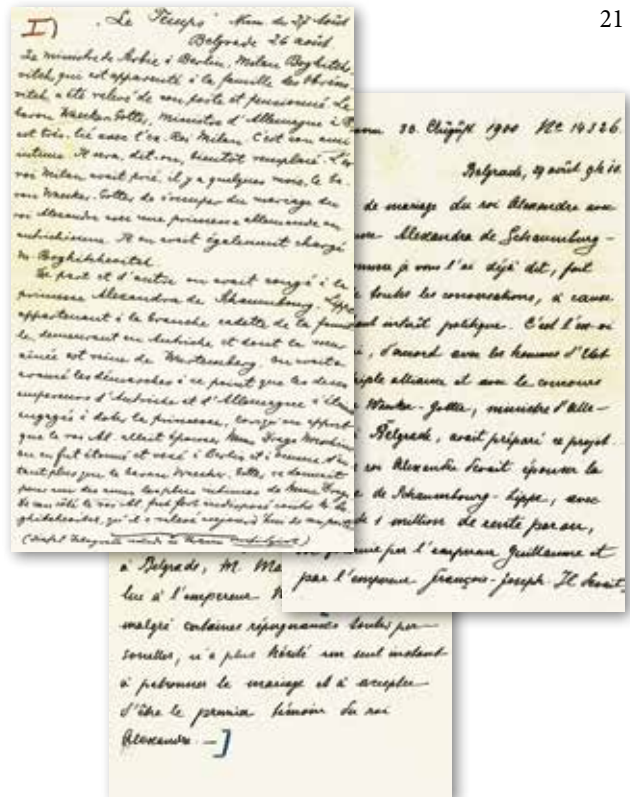 21
I)
"Le Temps" Num du 27 Août
Belgrade 26 août
Le ministre de Serbie à Berlin, Milan Boghitch-
vitch, qui est apparenté à la famille des Obréno-
vitch, a été relevé de son poste et pensionné. Le
baron Waecker-Gotter, ministre d'Allemagne à
est très lié avec l'ex-Roi Milan. C'est son ami
intime. Il sera, dit-on, bientôt remplacé. L'ex
roi Milan avait prié, il y a quelques mois, le ba-
ron Waecker-Gotter de s'occuper du mariage du
roi Alexandre avec une princesse allemande ou
autrichienne. Il en avait également chargé
M. Boghitchevitch.
De part et d'autre on avait songé à la
princesse Alexandra de Schaumbourg-Lippe
appartenant à la branche cadette de la famil
le, demeurant en Autriche et dont la sœur
aînée est reine de Wurtemberg. On avait
avancé les démarches à ce point que les deux
empereurs d'Autriche et d'Allemagne s'étaient
engagés à doter la princesse, lorsqu'on apprit
que le roi Al. allait épouser Mme Draga Maschin
on en fut étonné et vexé à Berlin et à Vienne d'au
tant plus que le baron Waecker-Gotter se donnait
pour un des amis les plus intimes de Mme Draga
De son côté le roi Al. fut fort indisposé contre M. Bo
ghitchevitch, qu'il a relevé aujourd'hui de son poste
1900 № 14326.
Belgrade, 29 août 9h 10.
de mariage du roi Alexandre avec
Alexandra de Schaumburg-
comme je vous l'ai déjà dit, fait
toutes les conversations, à cause
intérêt politique. C'est l'ex-roi
d'accord avec les hommes d'Etat
triple alliance et avec le concours
Waeker-Gotter, ministre d'Alle-
Belgrade, avait préparé ce projet.
roi Alexandre devait épouser la
de Schaumbourg-Lippe, avec
de 1 million de rente par an,
par l'empereur Guillaume et
par l'empereur François-Joseph. Il devait,
à Belgrade, M. Ma
lue à l'empereur
malgré certaines répugnances toutes per-
sonnelles, n'a plus hésité un seul instant
à patronner le mariage et à accepter
d'être le premier témoin du roi
Alexandre. —]